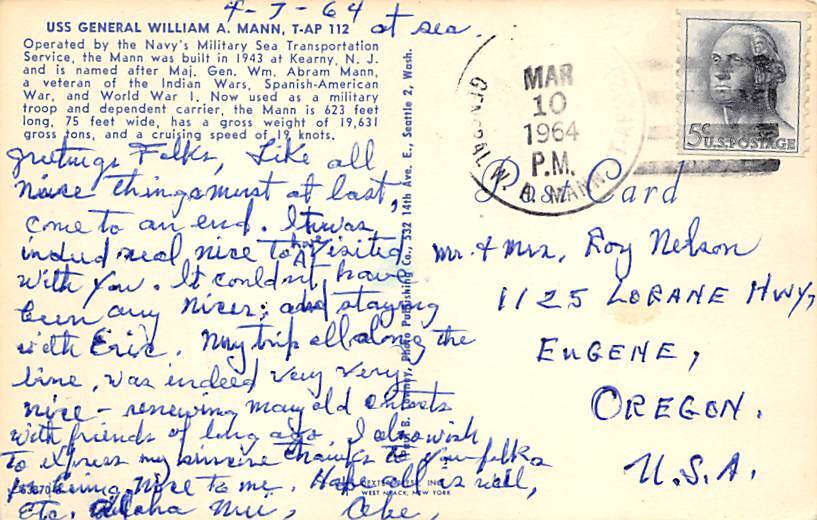 4-7-64 at sea.
USS GENERAL WILLIAM A. MANN, T-AP 112
Operated by the Navy's Military Sea Transportation
Service, the Mann was built in 1943 at Kearny, N. J.
and is named after Maj. Gen. Wm. Abram Mann,
a veteran of the Indian Wars, Spanish-American
War, and World War I. Now used as a military
troop and dependent carrier, the Mann is 623 feet
long, 75 feet wide, has a gross weight of 19,631
gross tons, and a cruising speed of 19 knots.
Greetings Folks, Like all
nice things must at last,
come to an end. It was
indeed real nice to have visited
with you. It couldn't have
been any nicer; and staying
with Eric. My trip all along the
line, was indeed very very
nice - renewing many old
with friends of long ago. I also wish
to express my sincere thanks to you folks
for being nice to me. Hope all is well,
etc. Aloha Nui,
Co., 532 14th Ave. E., Seattle 2, Wash.
WEST NYACK, NEW YORK
GENERAL W. A. MANN
MAR
10
1964
P.M.
5¢ U.S. POSTAGE
Post Card
Mr. & Mrs. Roy Nelson
1125 LORANE HWY,
EUGENE,
OREGON.
U.S.A.